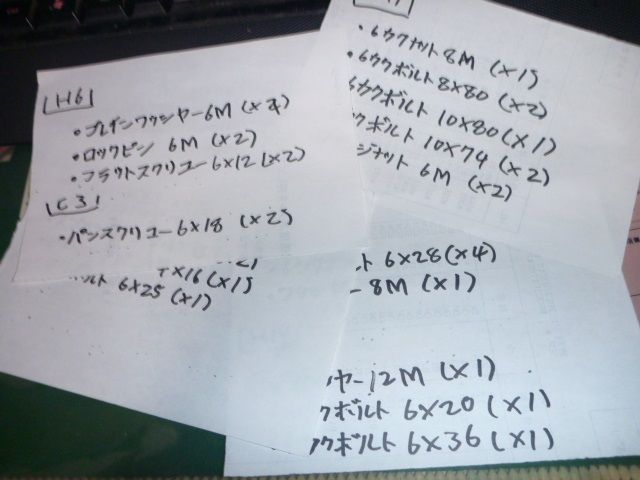 H6
・プレインワッシャー6M (×4)
・ロックピン 6M (×2)
・フラットスクリュー6×12 (×2)
C31
・パンスクリュー6×18 (×2)
×16 (×1)
ルト 6×25 (×1)
・6カクナット8M (×1)
・6カクボルト8×80 (×2)
6カクボルト 10×80 (×1)
クボルト 10×74 (×2)
ジナット 6M (×2)
ット 6×28 (×4)
ー8M (×1)
ヤー12M (×1)
クボルト 6×20 (×1)
クボルト 6×36 (×1)